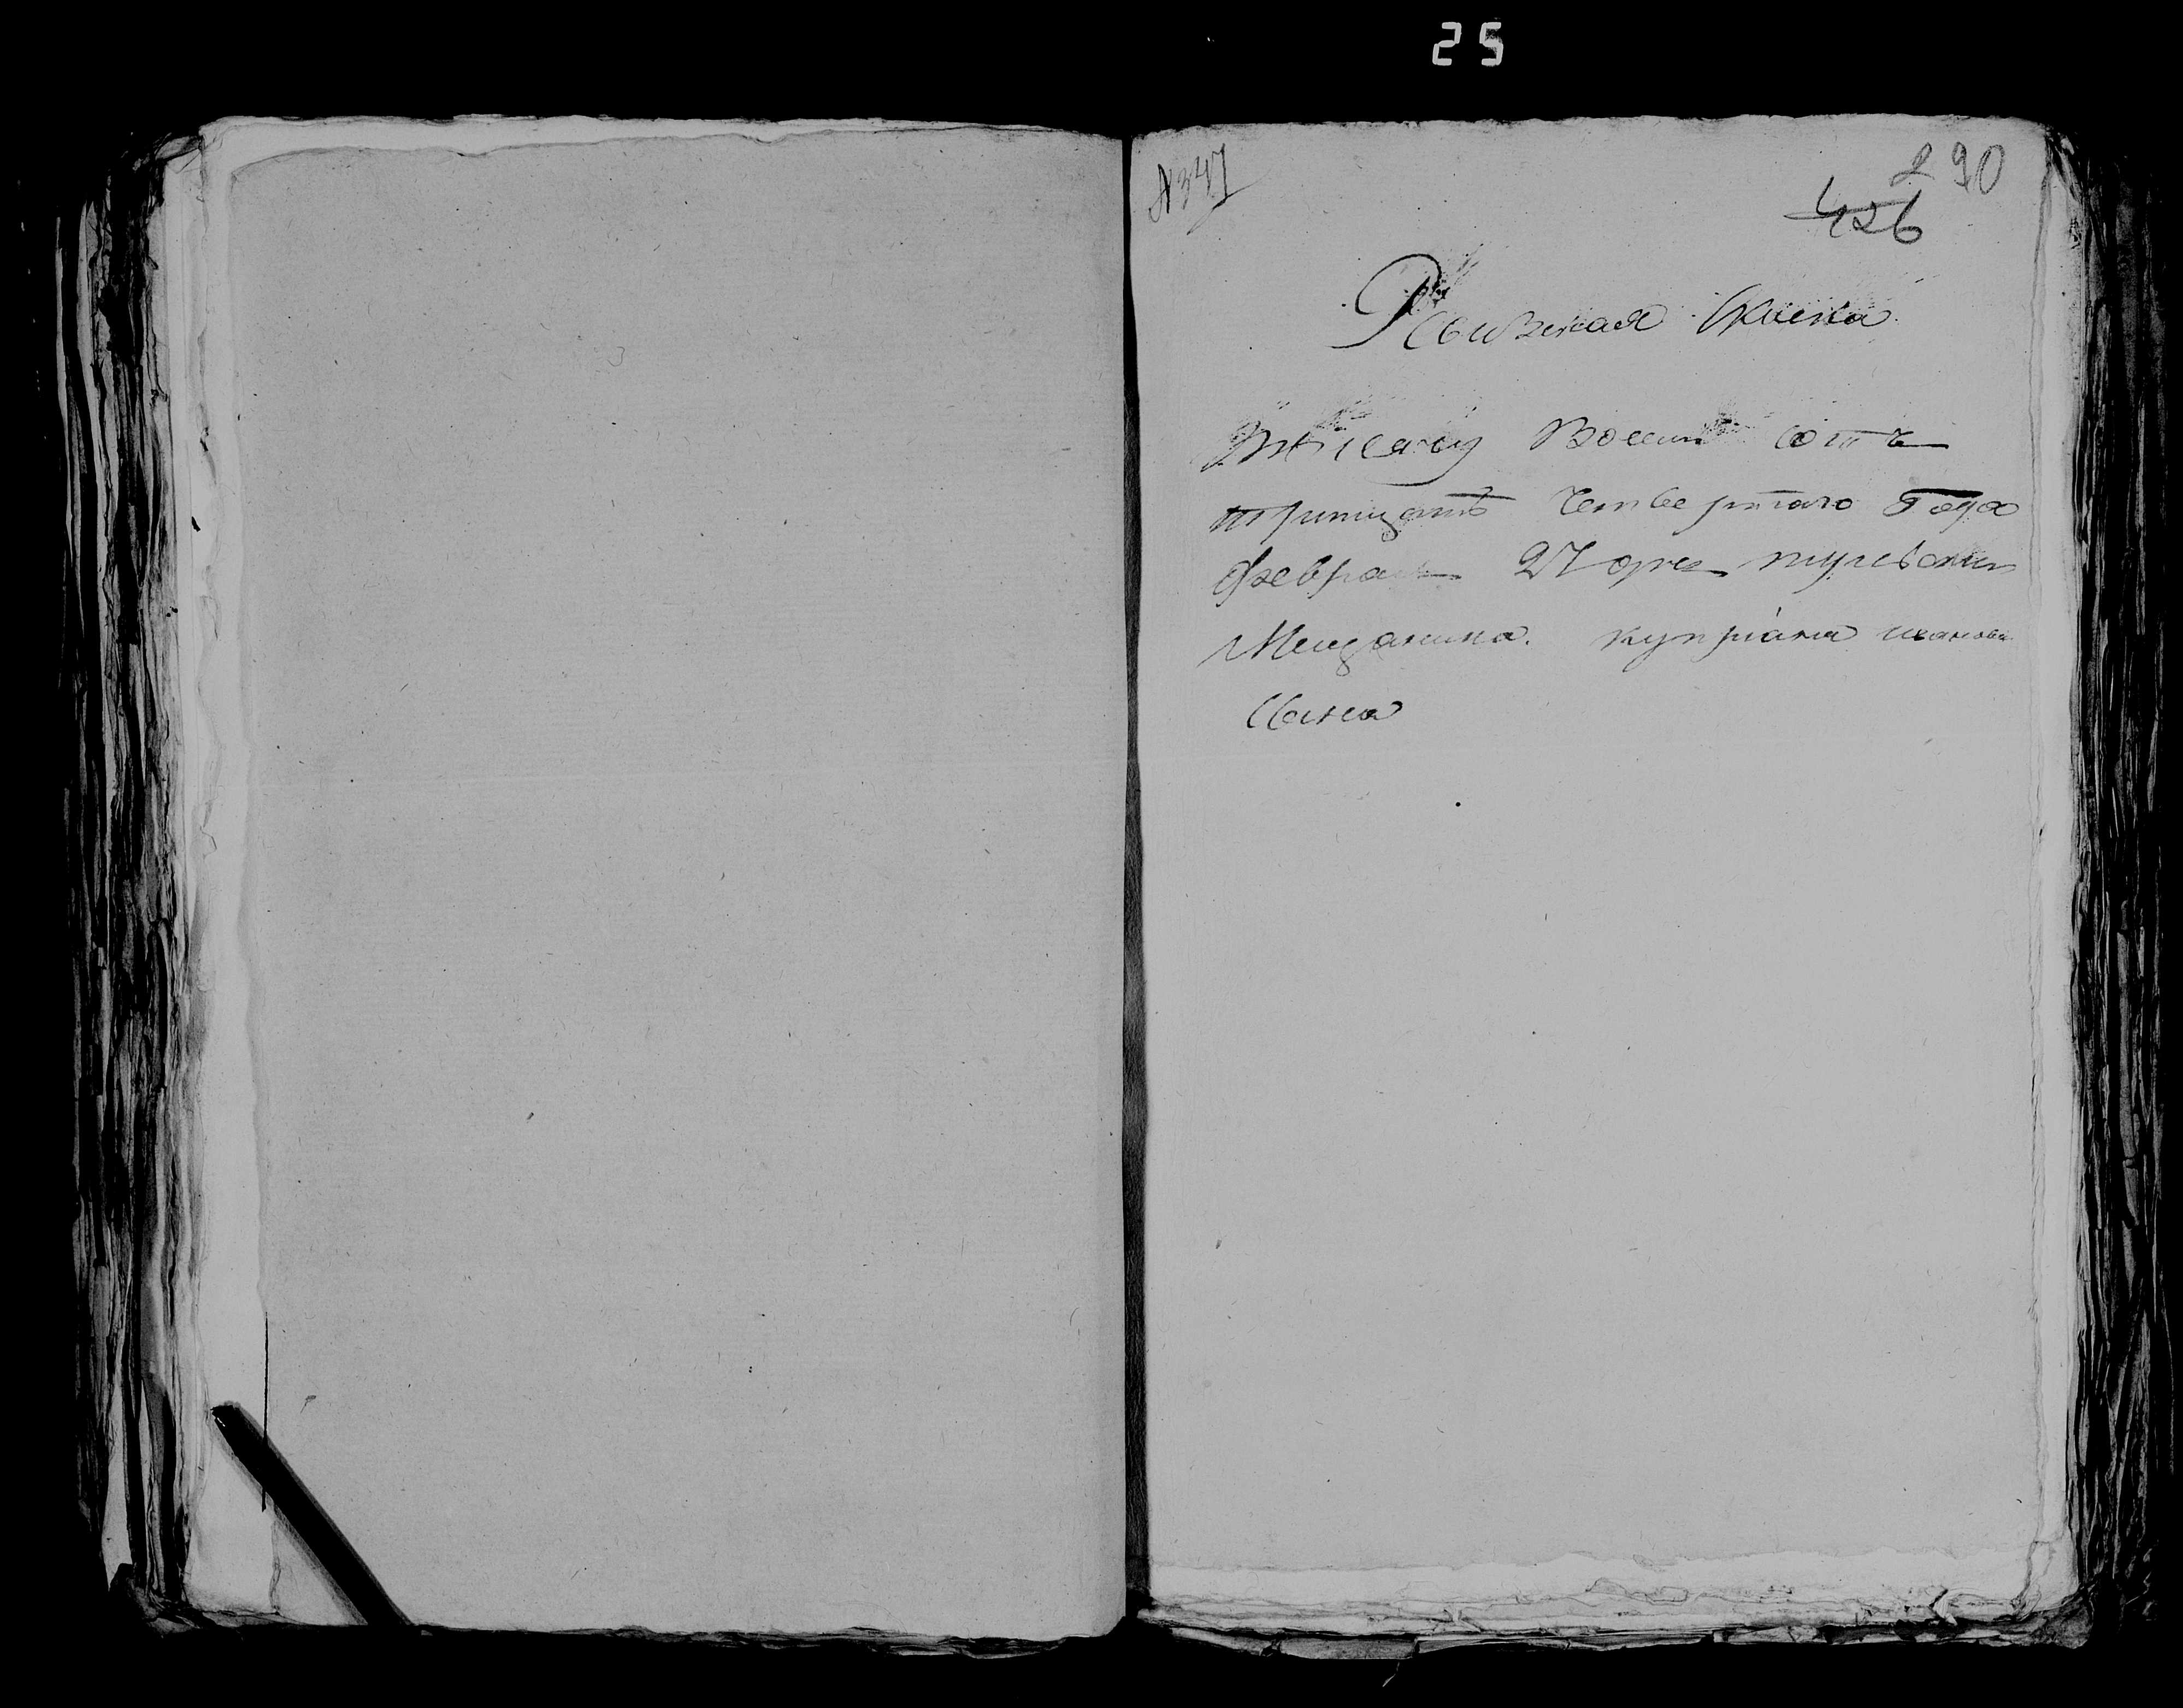 25
№ 347
290
426
Ревизская Скаска
Тысячу Восим сотъ
тритцать Четвертаго Года
февраля 27 дня тульскаго
Мещанина. куприана иванова
Сына